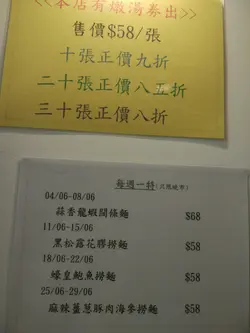 <<本店有燉湯券出>>
售價$58/張
十張正價九折
二十張正價八五折
三十張正價八折
每週一特(只限晚市)
04/06-08/06
蒜香龍蝦關條麵 $68
11/06-15/06
黑松露花膠撈麵 $58
18/06-22/06
蠔皇鮑魚撈麵 $58
25/06-29/06
麻辣薑蔥豚肉海參撈麵 $58